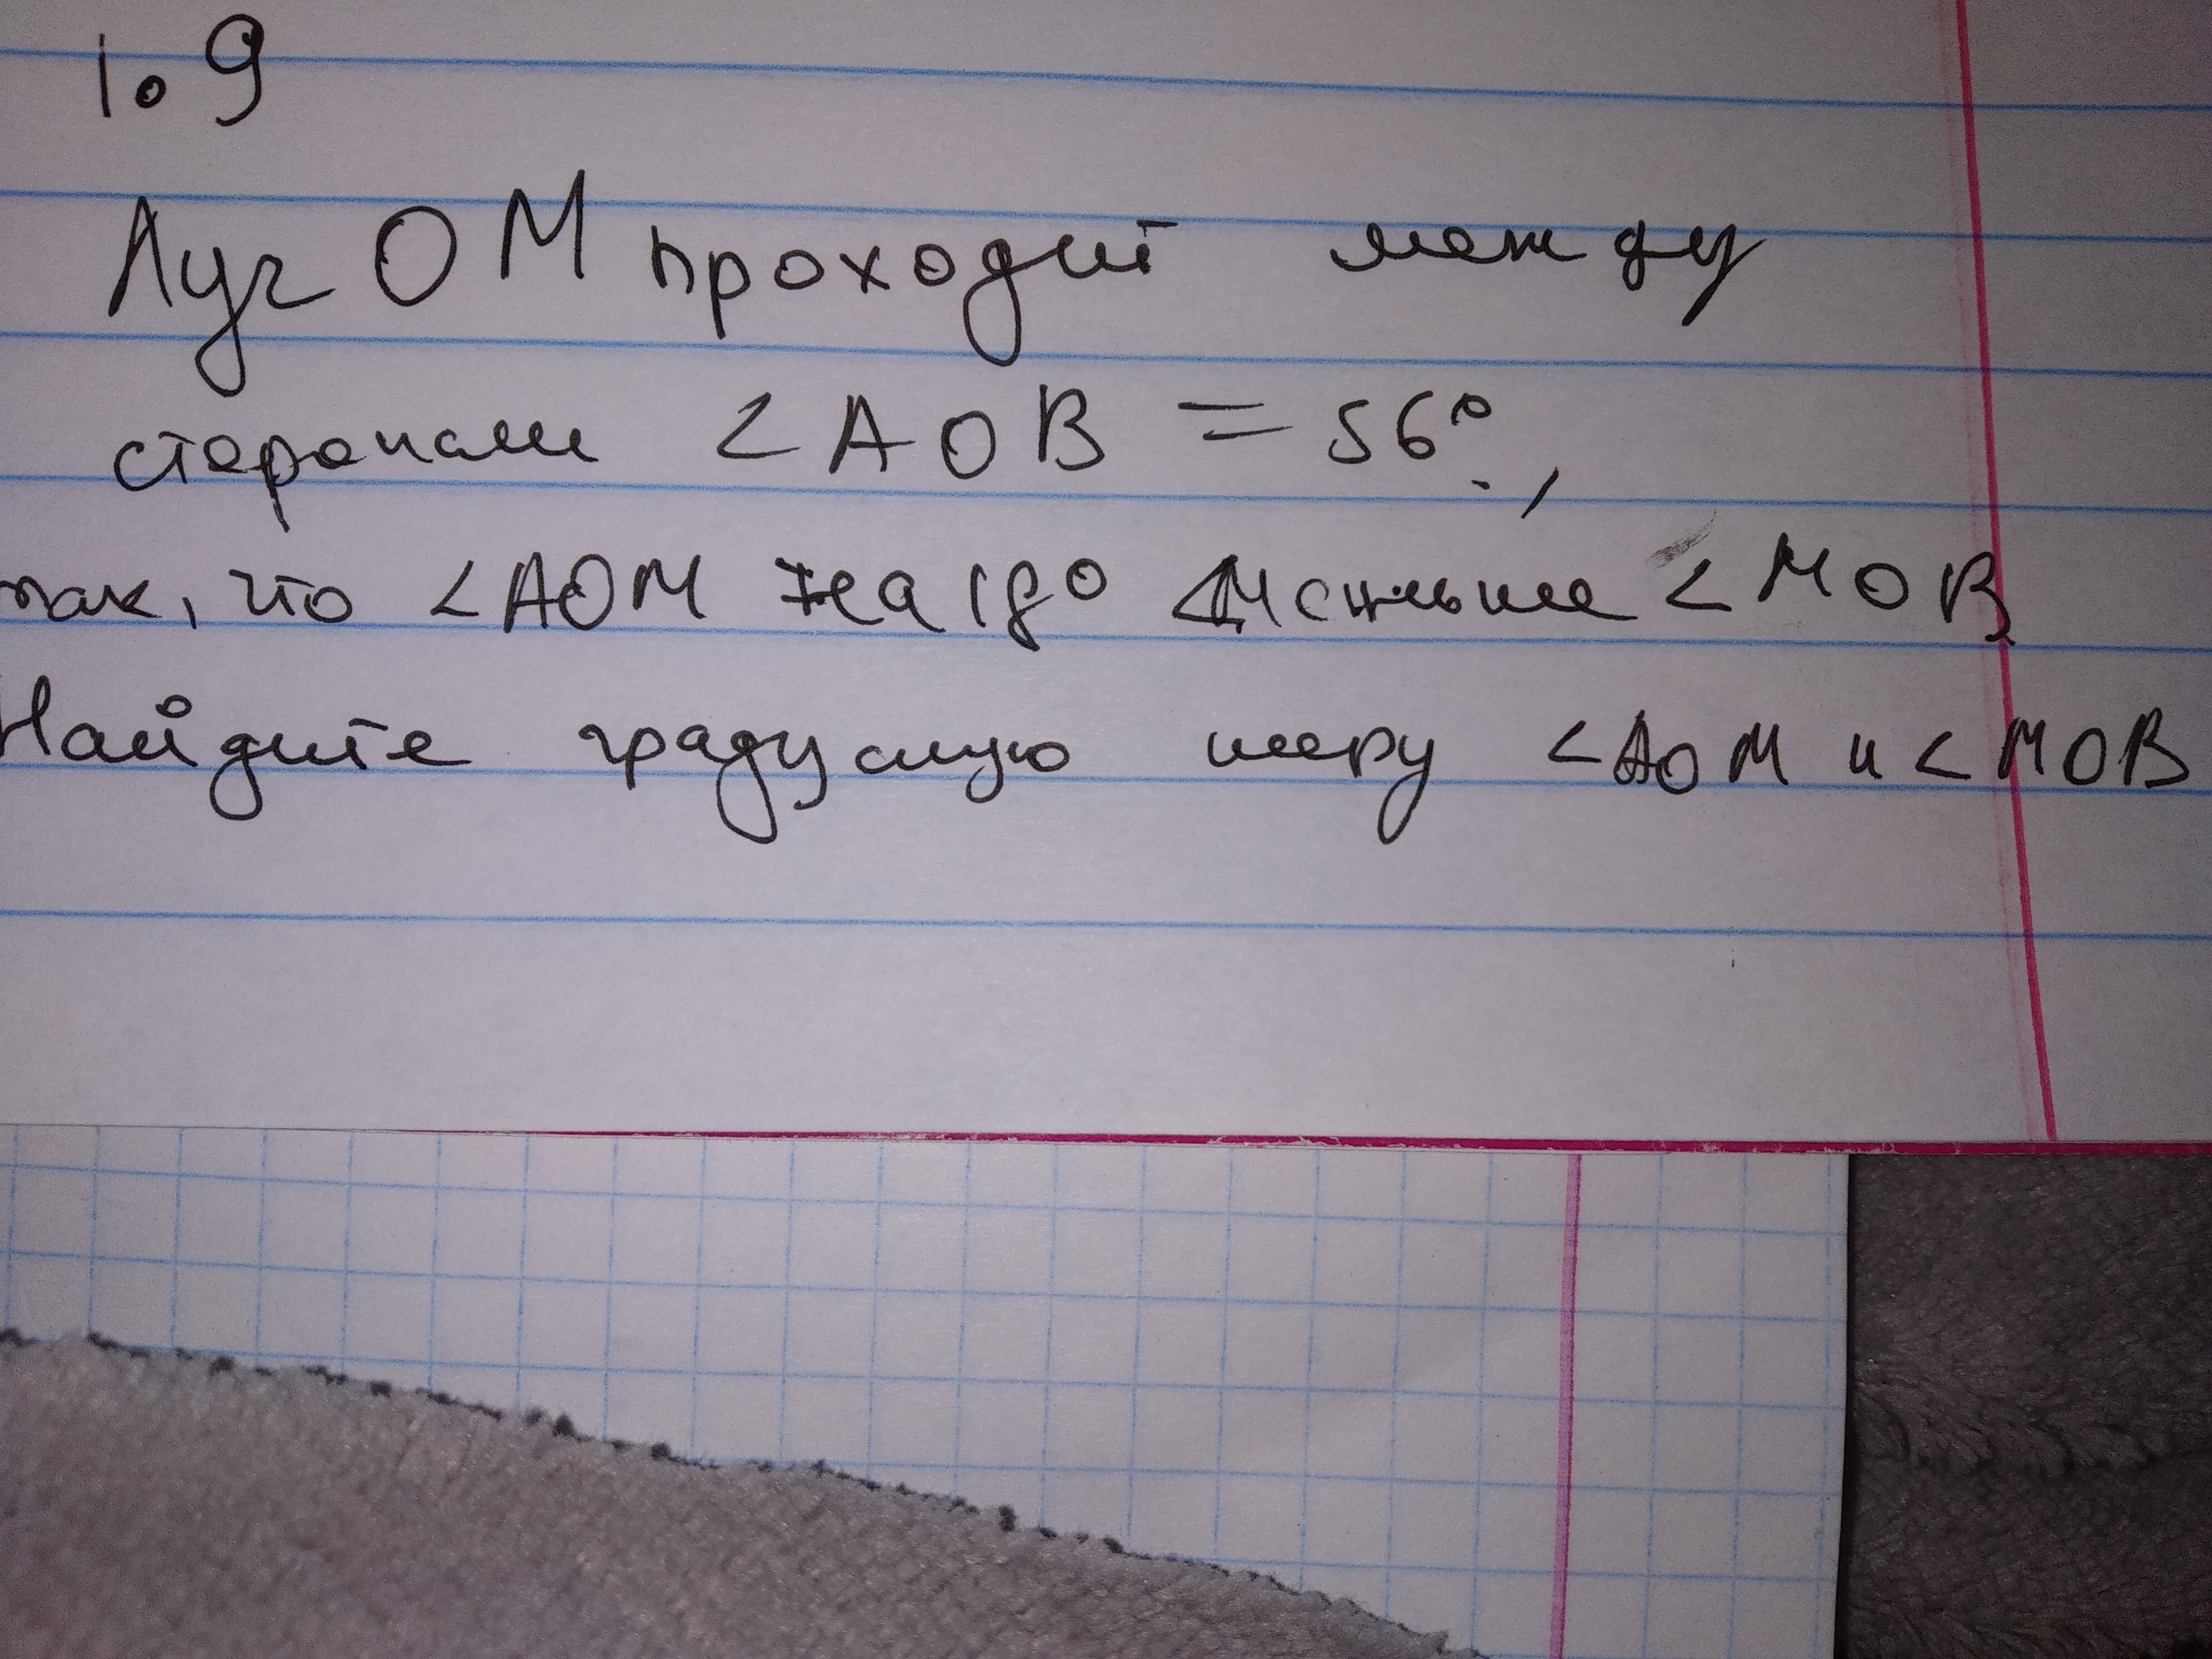 1.9
Луч OM проходит между
сторонами < AOB = 56°.,
так, что < AOM на 18° меньше < MOB
Найдите градусную меру < AOM и < MOB